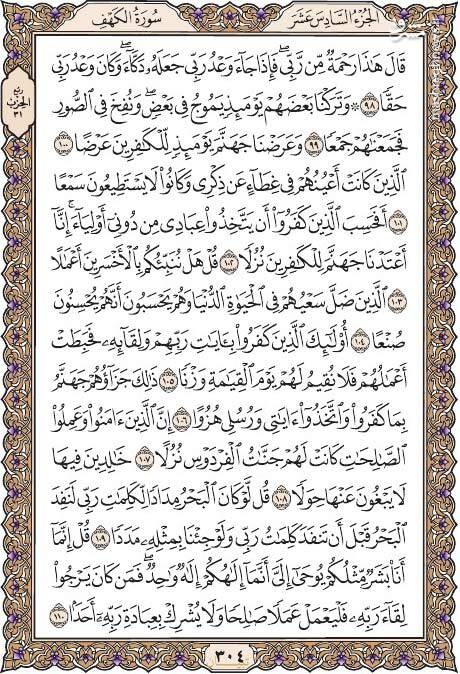 الجزء السادس عشر
سورة الكهف
ربع
الحزب
٣١
قَالَ هَٰذَا رَحْمَةٌ مِّن رَّبِّي ۖ فَإِذَا جَاءَ وَعْدُ رَبِّي جَعَلَهُ دَكَّاءَ ۖ وَكَانَ وَعْدُ رَبِّي
حَقًّا ﴿٩٨﴾ ۞ وَتَرَكْنَا بَعْضَهُمْ يَوْمَئِذٍ يَمُوجُ فِي بَعْضٍ ۖ وَنُفِخَ فِي الصُّورِ
فَجَمَعْنَاهُمْ جَمْعًا ﴿٩٩﴾ وَعَرَضْنَا جَهَنَّمَ يَوْمَئِذٍ لِّلْكَافِرِينَ عَرْضًا ﴿١٠٠﴾
الَّذِينَ كَانَتْ أَعْيُنُهُمْ فِي غِطَاءٍ عَن ذِكْرِي وَكَانُوا لَا يَسْتَطِيعُونَ سَمْعًا
﴿١٠١﴾ أَفَحَسِبَ الَّذِينَ كَفَرُوا أَن يَتَّخِذُوا عِبَادِي مِن دُونِي أَوْلِيَاءَ ۚ إِنَّا
أَعْتَدْنَا جَهَنَّمَ لِلْكَافِرِينَ نُزُلًا ﴿١٠٢﴾ قُلْ هَلْ نُنَبِّئُكُم بِالْأَخْسَرِينَ أَعْمَالًا
﴿١٠٣﴾ الَّذِينَ ضَلَّ سَعْيُهُمْ فِي الْحَيَاةِ الدُّنْيَا وَهُمْ يَحْسَبُونَ أَنَّهُمْ يُحْسِنُونَ
صُنْعًا ﴿١٠٤﴾ أُولَٰئِكَ الَّذِينَ كَفَرُوا بِآيَاتِ رَبِّهِمْ وَلِقَائِهِ فَحَبِطَتْ
أَعْمَالُهُمْ فَلَا نُقِيمُ لَهُمْ يَوْمَ الْقِيَامَةِ وَزْنًا ﴿١٠٥﴾ ذَٰلِكَ جَزَاؤُهُمْ جَهَنَّمُ
بِمَا كَفَرُوا وَاتَّخَذُوا آيَاتِي وَرُسُلِي هُزُوًا ﴿١٠٦﴾ إِنَّ الَّذِينَ آمَنُوا وَعَمِلُوا
الصَّالِحَاتِ كَانَتْ لَهُمْ جَنَّاتُ الْفِرْدَوْسِ نُزُلًا ﴿١٠٧﴾ خَالِدِينَ فِيهَا
لَا يَبْغُونَ عَنْهَا حِوَلًا ﴿١٠٨﴾ قُل لَّوْ كَانَ الْبَحْرُ مِدَادًا لِّكَلِمَاتِ رَبِّي لَنَفِدَ
الْبَحْرُ قَبْلَ أَن تَنفَدَ كَلِمَاتُ رَبِّي وَلَوْ جِئْنَا بِمِثْلِهِ مَدَدًا ﴿١٠٩﴾ قُلْ إِنَّمَا
أَنَا بَشَرٌ مِّثْلُكُمْ يُوحَىٰ إِلَيَّ أَنَّمَا إِلَٰهُكُمْ إِلَٰهٌ وَاحِدٌ ۖ فَمَن كَانَ يَرْجُو
لِقَاءَ رَبِّهِ فَلْيَعْمَلْ عَمَلًا صَالِحًا وَلَا يُشْرِكْ بِعِبَادَةِ رَبِّهِ أَحَدًا ﴿١١٠﴾
٣٠٤